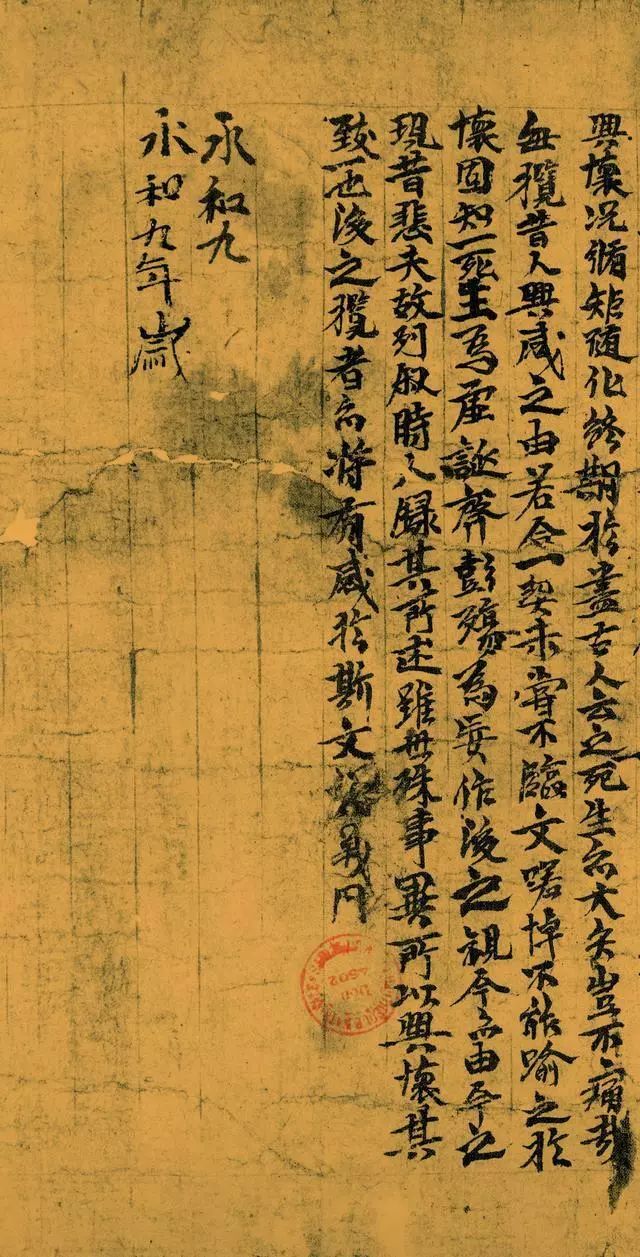 興懷况脩矩隨化終期於盡古人云之死生亦大矣豈不痛哉
每攬昔人興感之由若合一契未嘗不臨文嗟悼不能喻之於
懷固知一死生為虛誕齊彭殤為妄作後之視今亦由今之
現昔悲夫故列叙時人録其所述雖世殊事異所以興懷其
致一也後之攬者亦將有感於斯文
永和九
永和九年歲